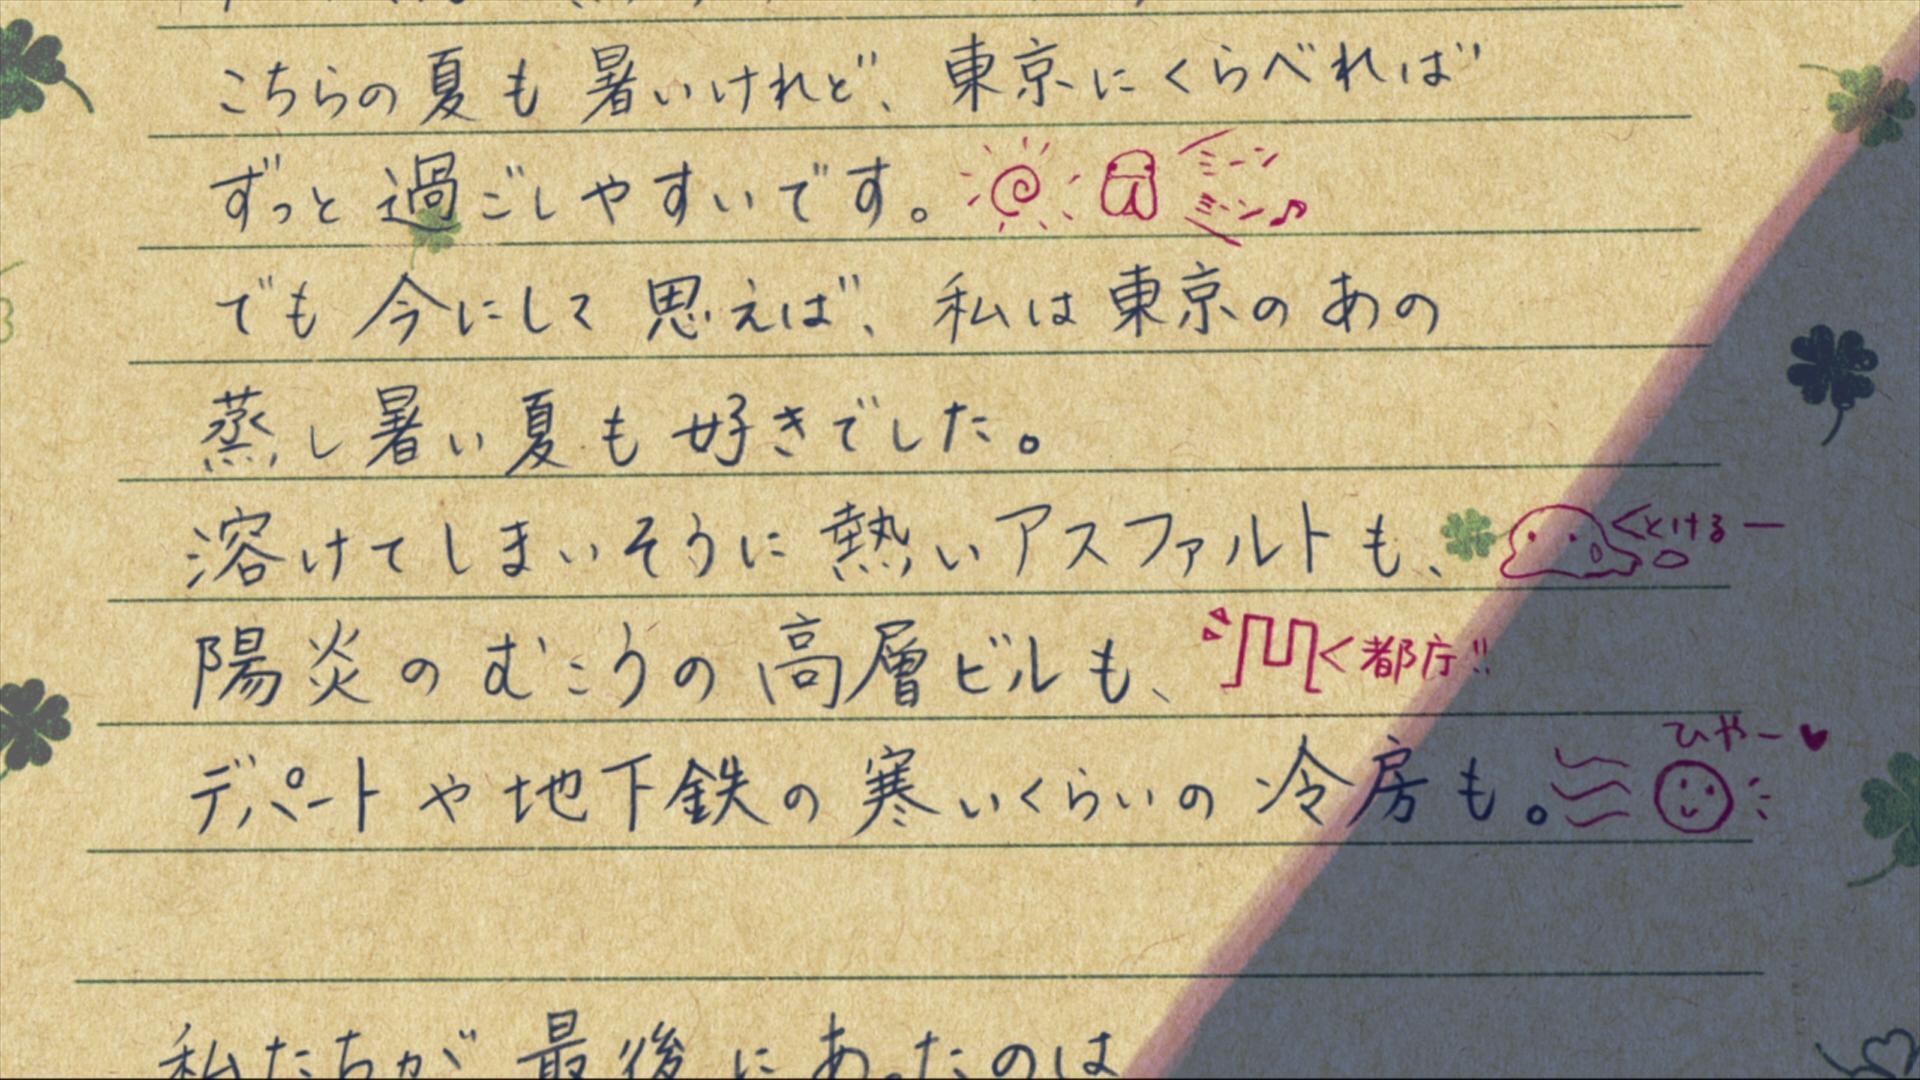 こちらの夏も暑いけれど、東京にくらべれば
ずっと過ごしやすいです。 ミーン ミーン♪
でも今にして思えば、私は東京のあの
蒸し暑い夏も好きでした。
溶けてしまいそうに熱いアスファルトも、 <とけるー
陽炎のむこうの高層ビルも、 <都庁!!
ひやー♥
デパートや地下鉄の寒いくらいの冷房も。
私たちが最後にあったのは